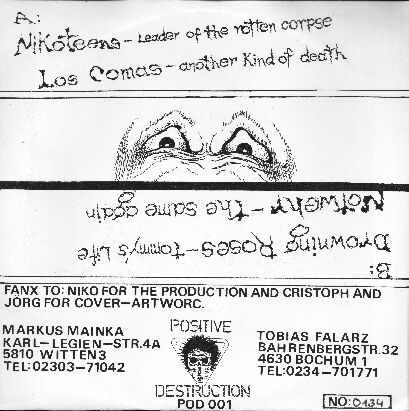 A:
Nikoteens - Leader of the rotten corpse
Los Comas - another kind of death
B:
Drowning Roses - Tommy's Life
Notwehr - the same again
FANX TO: NIKO FOR THE PRODUCTION AND CRISTOPH AND
JÖRG FOR COVER-ARTWORC.
MARKUS MAINKA
KARL-LEGIEN-STR.4A
5810 WITTEN 3
TEL:02303-71042
POSITIVE
DESTRUCTION
POD 001
TOBIAS FALARZ
BAHRENBERGSTR.32
4630 BOCHUM 1
TEL:0234-701771
NO:0134